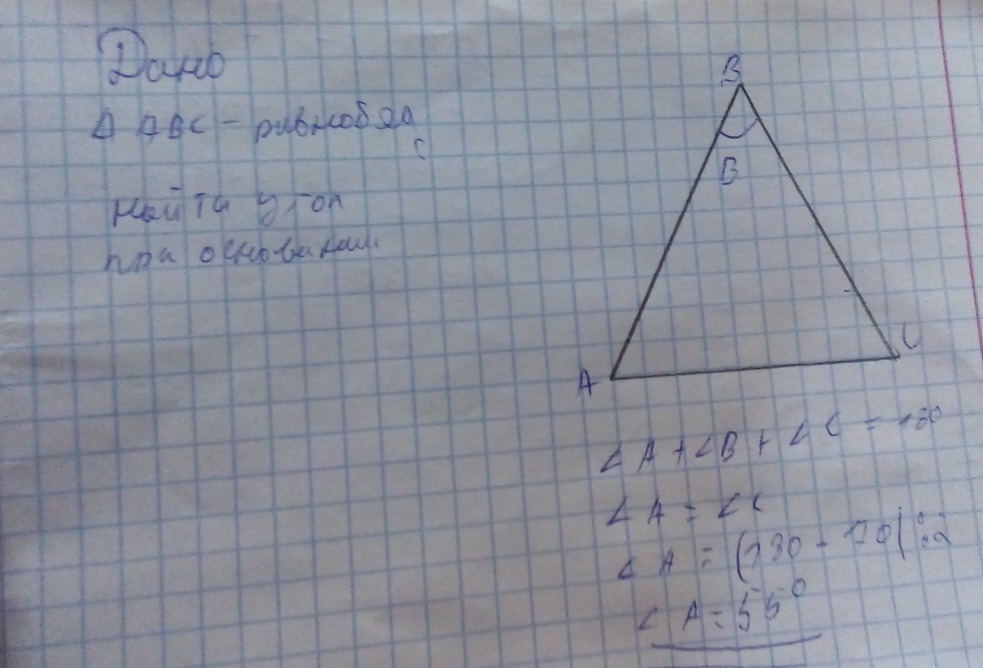 Дано
Δ ABC - равнобед
Найти угол
при основании.
B
B
A
C
∠A + ∠B + ∠C = 180
∠A = ∠C
∠A = (180 - 70) : 2
∠A = 55°